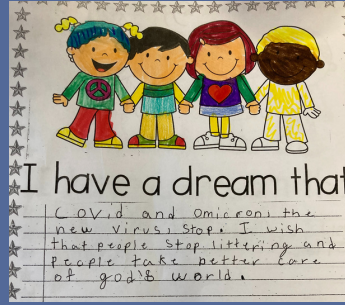 I have a dream that
Covid and omicron, the
new virus, stop. I wish
that people stop littering and
people take better care
of god's world.